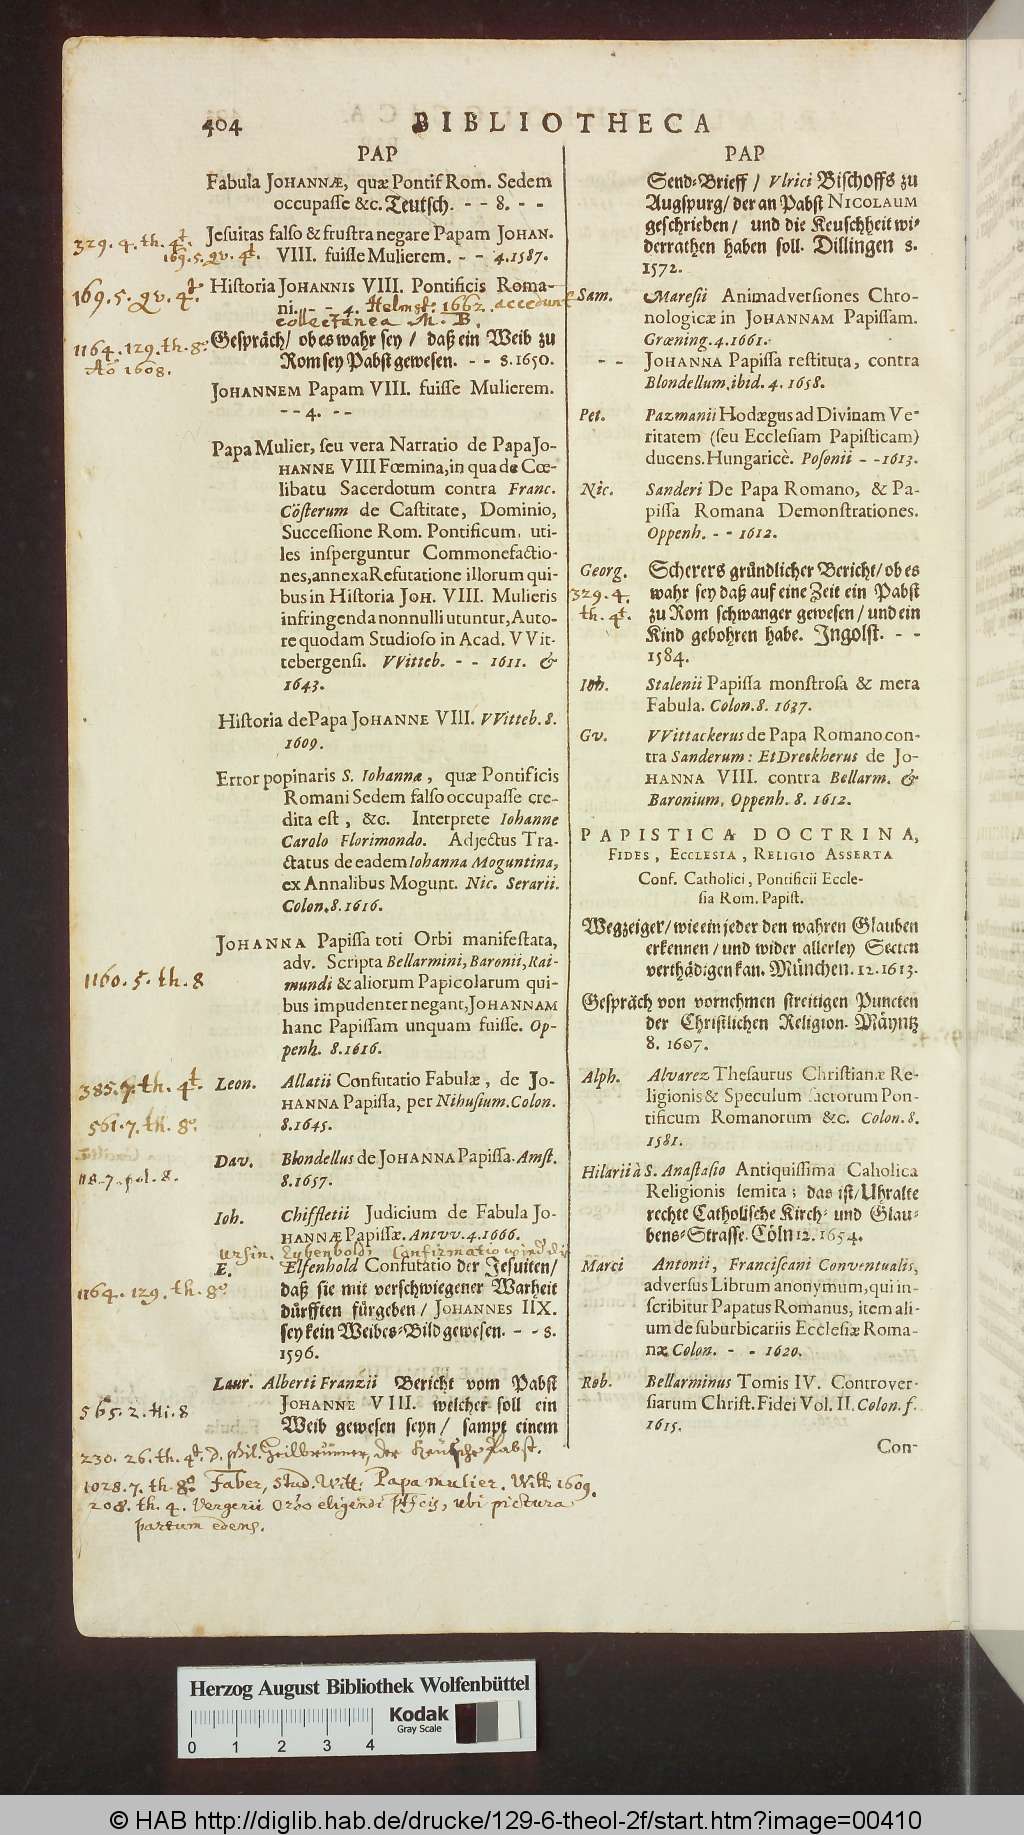 404 BIBLIOTHECA
PAP
Fabula JOHANNÆ, quæ Pontif Rom. Sedem
occupasse &c. Teutsch. - - 8. - -
329. 4. th. 4t.
Jesuitas falso & frustra negare Papam JOHAN.
169. 5. qv. 4t.
VIII. fuisse Mulierem. - - 4. 1587.
169. 5. qv. 4t.
Historia JOHANNIS VIII. Pontificis Roma-
ni. - - 4. Helmst. 1662. accedunt
collectanea M. B.
1164. 129. th. 8o
Gespräch/ ob es wahr sey / daß ein Weib zu
Ao 1608.
Rom sey Pabst gewesen. - - 8. 1650.
JOHANNEM Papam VIII. fuisse Mulierem.
- - 4. - -
Papa Mulier, seu vera Narratio de Papa JO-
HANNE VIII Fœmina, in qua de Cœ-
libatu Sacerdotum contra Franc.
Cösterum de Castitate, Dominio,
Successione Rom. Pontificum, uti-
les insperguntur Commonefactio-
nes, annexa Refutatione illorum qui-
bus in Historia JOH. VIII. Mulieris
infringenda nonnulli utuntur, Auto-
re quodam Studioso in Acad. VVit-
tebergensi. VVitteb. - - 1611. &
1643.
Historia de Papa JOHANNE VIII. VVitteb. 8.
1609.
Error popinaris S. Iohannæ, quæ Pontificis
Romani Sedem falso occupasse cre-
dita est, &c. Interprete Iohanne
Carolo Florimondo. Adjectus Tra-
ctatus de eadem Iohanna Moguntina,
ex Annalibus Mogunt. Nic. Serarii.
Colon. 8. 1616.
JOHANNA Papissa toti Orbi manifestata,
adv. Scripta Bellarmini, Baronii, Rai-
1160. 5. th. 8
mundi & aliorum Papicolarum qui-
bus impudenter negant, JOHANNAM
hanc Papissam unquam fuisse. Op-
penh. 8. 1616.
385. 7. th. 4t.
Leon. Allatii Confutatio Fabulæ, de JO-
HANNA Papissa, per Nihusium. Colon.
561. 7. th. 8o.
8. 1645.
Dav. Blondellus de JOHANNA Papissa. Amst.
118. 7. pol. 8.
8. 1657.
Ioh. Chiffletii Judicium de Fabula JO-
HANNÆ Papissæ. Antvv. 4. 1666.
E. Elfenhold Confutatio der Jesuiten/
1164. 129. th. 8o
daß sie mit verschwiegener Warheit
dürfften fürgeben / JOHANNES IIX.
sey kein Weibes-Bild gewesen. - - 8.
1596.
Laur. Alberti Franzii Bericht vom Pabst
565. 2. Hi. 8
JOHANNE VIII. welcher soll ein
Weib gewesen seyn / sampt einem
230. 26. th. 4t. D. Phil. Heilbrunner, der Keusche Pabst.
1028. 7. th. 8o Faber, Stud. Witt: Papa mulier. Witt. 1609.
208. th. 4. Vergerii Ordo eligendi Ptfcis, ubi pictura
partum edens.
PAP
Send-Brieff / Vlrici Bischoffs zu
Augspurg/ der an Pabst NICOLAUM
geschrieben / und die Keuschheit wi-
derrathen haben soll. Dillingen 8.
1572.
Sam. Maresii Animadversiones Chro-
nologicæ in JOHANNAM Papissam.
Grœning. 4. 1661.
- - JOHANNA Papissa restituta, contra
Blondellum. ibid. 4. 1658.
Pet. Pazmanii Hodægus ad Divinam Ve-
ritatem (seu Ecclesiam Papisticam)
ducens. Hungaricè. Posonii - - 1613.
Nic. Sanderi De Papa Romano, & Pa-
pissa Romana Demonstrationes.
Oppenh. - - 1612.
Georg. Scherers gründlicher Bericht/ ob es
329. 4.
wahr sey daß auf eine Zeit ein Pabst
th. 4t.
zu Rom schwanger gewesen / und ein
Kind gebohren habe. Ingolst. - -
1584.
Ioh. Stalenii Papissa monstrosa & mera
Fabula. Colon. 8. 1637.
Gv. VVittackerus de Papa Romano con-
tra Sanderum: Et Dreckherus de JO-
HANNA VIII. contra Bellarm. &
Baronium, Oppenh. 8. 1612.
PAPISTICA DOCTRINA,
FIDES, ECCLESIA, RELIGIO ASSERTA
Conf. Catholici, Pontificii Eccle-
sia Rom. Papist.
Wegzeiger/ wie ein jeder den wahren Glauben
erkennen / und wider allerley Secten
verthädigen kan. München. 12. 1613.
Gespräch von vornehmen streitigen Puncten
der Christlichen Religion. Mäyntz
8. 1607.
Alph. Alvarez Thesaurus Christianæ Re-
ligionis & Speculum factorum Pon-
tificum Romanorum &c. Colon. 8.
1581.
Hilarii à S. Anastasio Antiquissima Caholica
Religionis semita; das ist/ Uhralte
rechte Catholische Kirch- und Glau-
bens-Strasse. Cöln 12. 1654.
Marci Antonii, Franciscani Conventualis,
adversus Librum anonymum, qui in-
scribitur Papatus Romanus, item ali-
um de suburbicariis Ecclesiæ Roma-
næ Colon. - - 1620.
Rob. Bellarminus Tomis IV. Controver-
siarum Christ. Fidei Vol. II. Colon. f.
1615.
Con-
Herzog August Bibliothek Wolfenbüttel
Kodak
Gray Scale
0 1 2 3 4
© HAB http://diglib.hab.de/drucke/129-6-theol-2f/start.htm?image=00410